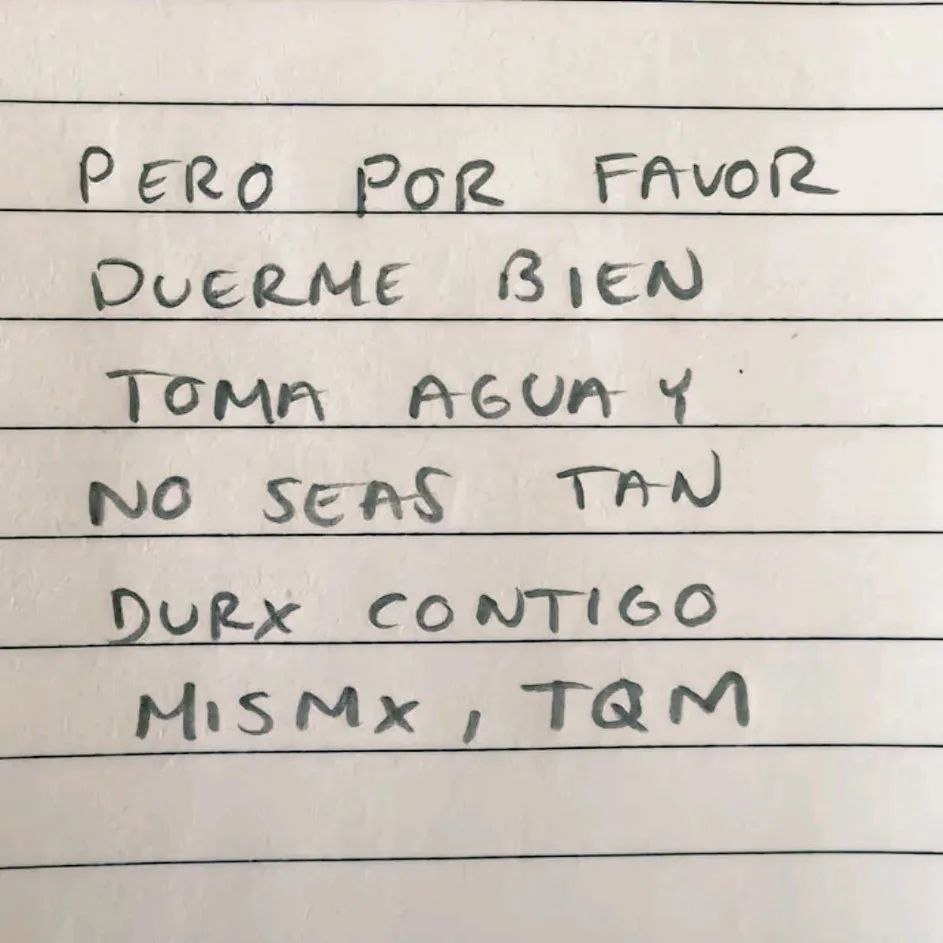 PERO POR FAVOR
DUERME BIEN
TOMA AGUA Y
NO SEAS TAN
DURX CONTIGO
MISMX, TQM